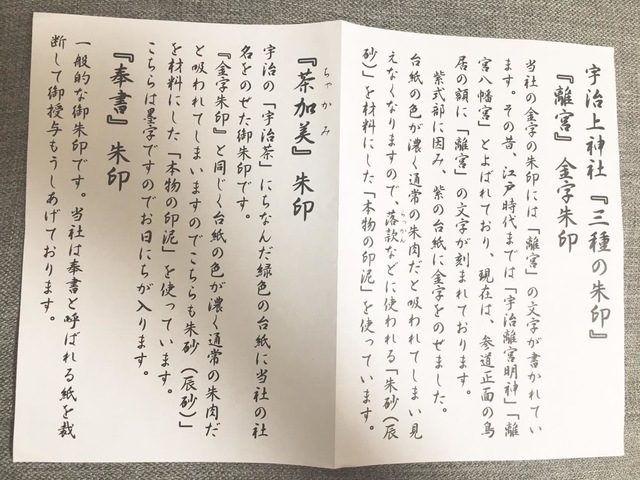 宇治上神社『三種の朱印』
『離宮』金字朱印
当社の金字の朱印には「離宮」の文字が書かれてい
ます。その昔、江戸時代までは「宇治離宮明神」「離
宮八幡宮」とよばれており、現在は、参道正面の鳥
居の額に「離宮」の文字が刻まれております。
紫式部に因み、紫の台紙に金字をのせました。
台紙の色が濃く通常の朱肉だと吸われてしまい見
えなくなりますので、落款などに使われる「朱砂（辰
らっかん
砂）」を材料にした「本物の印泥」を使っています。
ちゃかみ
『茶加美』朱印
宇治の「宇治茶」にちなんだ緑色の台紙に当社の社
名をのせた御朱印です。
『金字朱印』と同じく台紙の色が濃く通常の朱肉だ
と吸われてしまいますのでこちらも朱砂（辰砂）」
を材料にした「本物の印泥」を使っています。
こちらは墨字ですのでお日にちが入ります。
『奉書』朱印
一般的な御朱印です。当社は奉書と呼ばれる紙を裁
断して御授与もうしあげております。